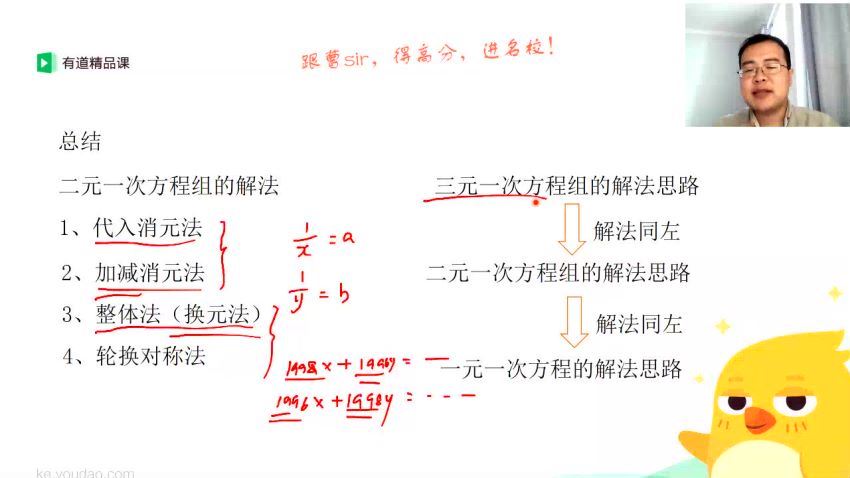 有道精品课
跟曹sir，得高分，进名校！
总结
二元一次方程组的解法
1、代入消元法
2、加减消元法
3、整体法（换元法）
4、轮换对称法
1/x = a
1/y = b
1998x + 1996y = —
1996x + 1998y = - - -
三元一次方程组的解法思路
解法同左
二元一次方程组的解法思路
解法同左
一元一次方程的解法思路
ke.youdao.com